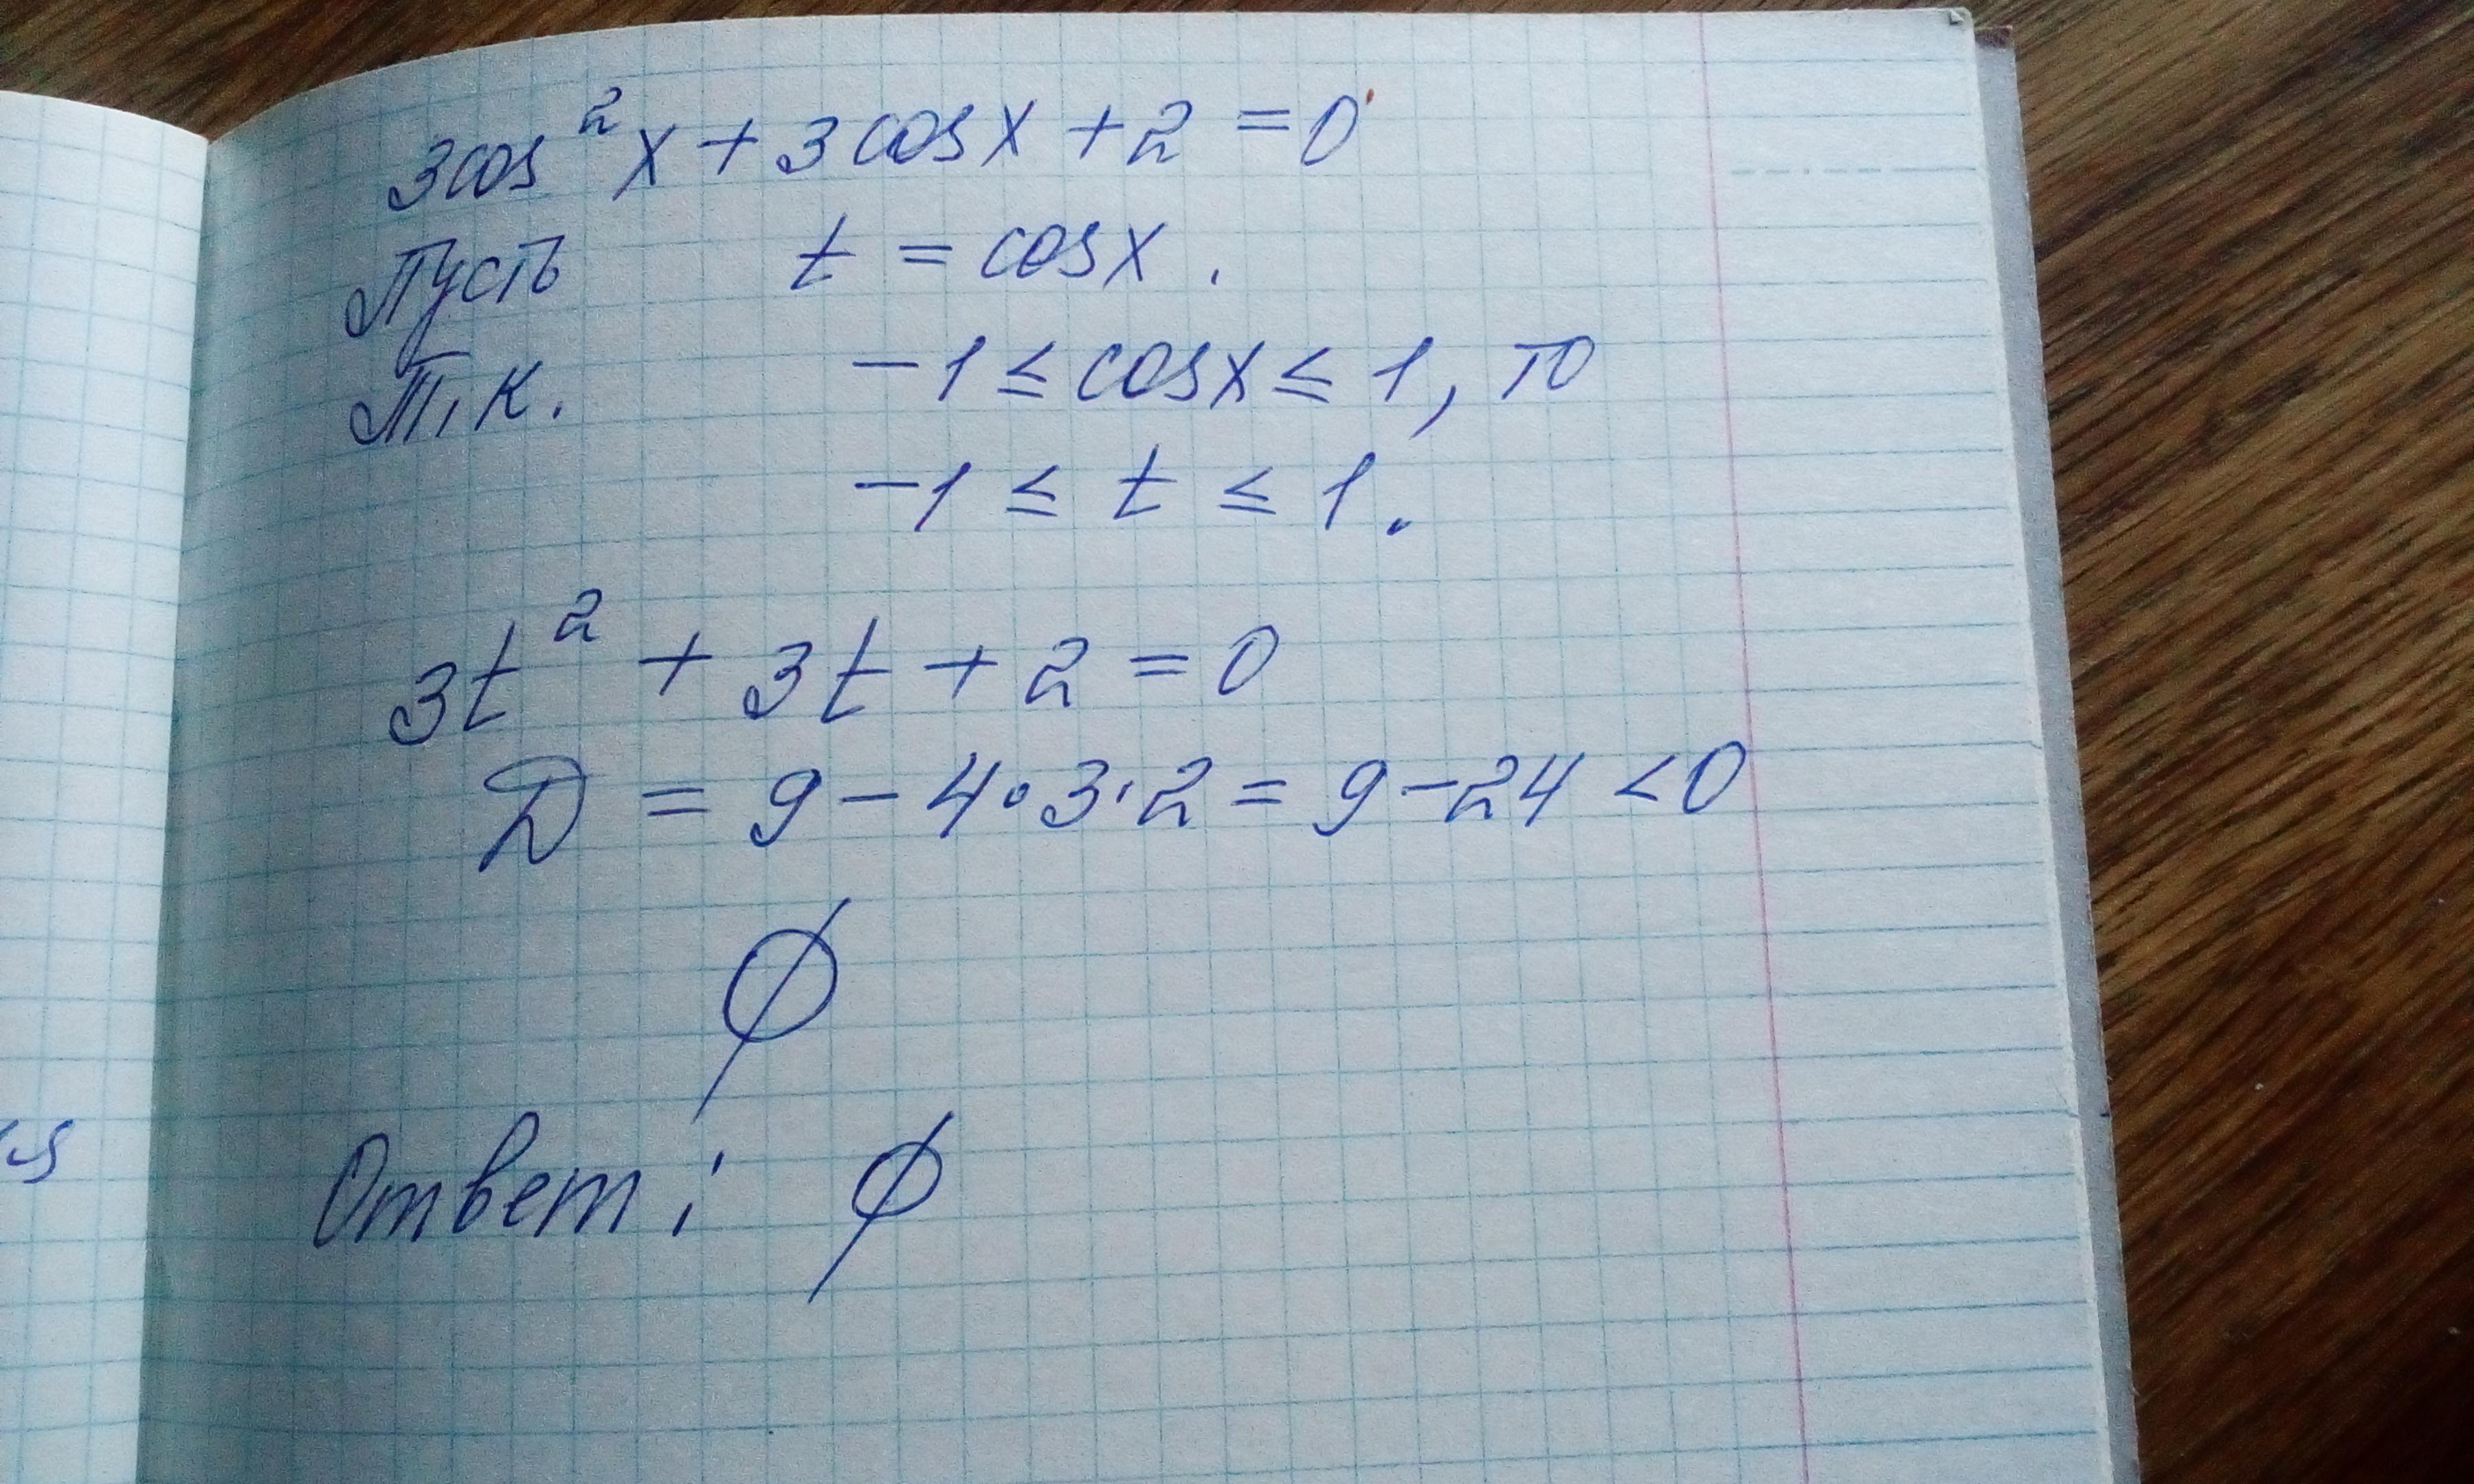 3cos²x + 3cosx + 2 = 0
Пусть t = cosx.
Т.к. -1 ≤ cosx ≤ 1, то
-1 ≤ t ≤ 1.
3t² + 3t + 2 = 0
D = 9 - 4·3·2 = 9 - 24 < 0
∅
Ответ: ∅